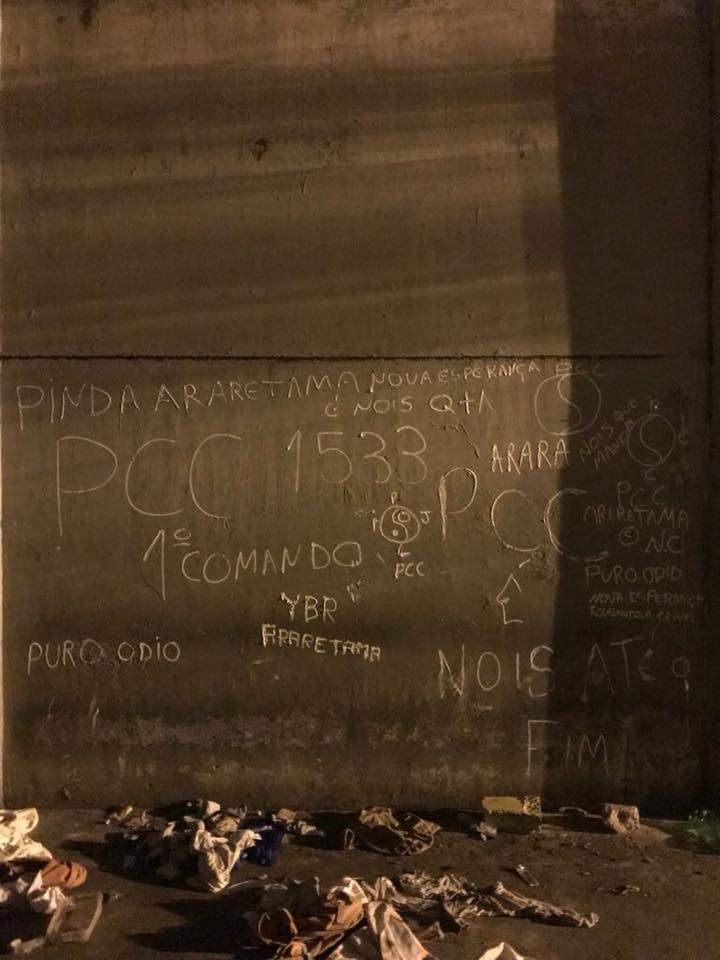 PINDA ARARETAMA NOVA ESPERANÇA
É NOIS Q+A
PCC
PCC 1533
ARARA
NOIS QUE
MANDA
P
C
C
P
I J
L
PCC
PCC
1º COMANDO
PCC
ARARETAMA
© N.C
PURO ODIO
NOVA ESPERANÇA
YBR
ARARETAMA
PURO ODIO
NOIS ATÉ O
FIM